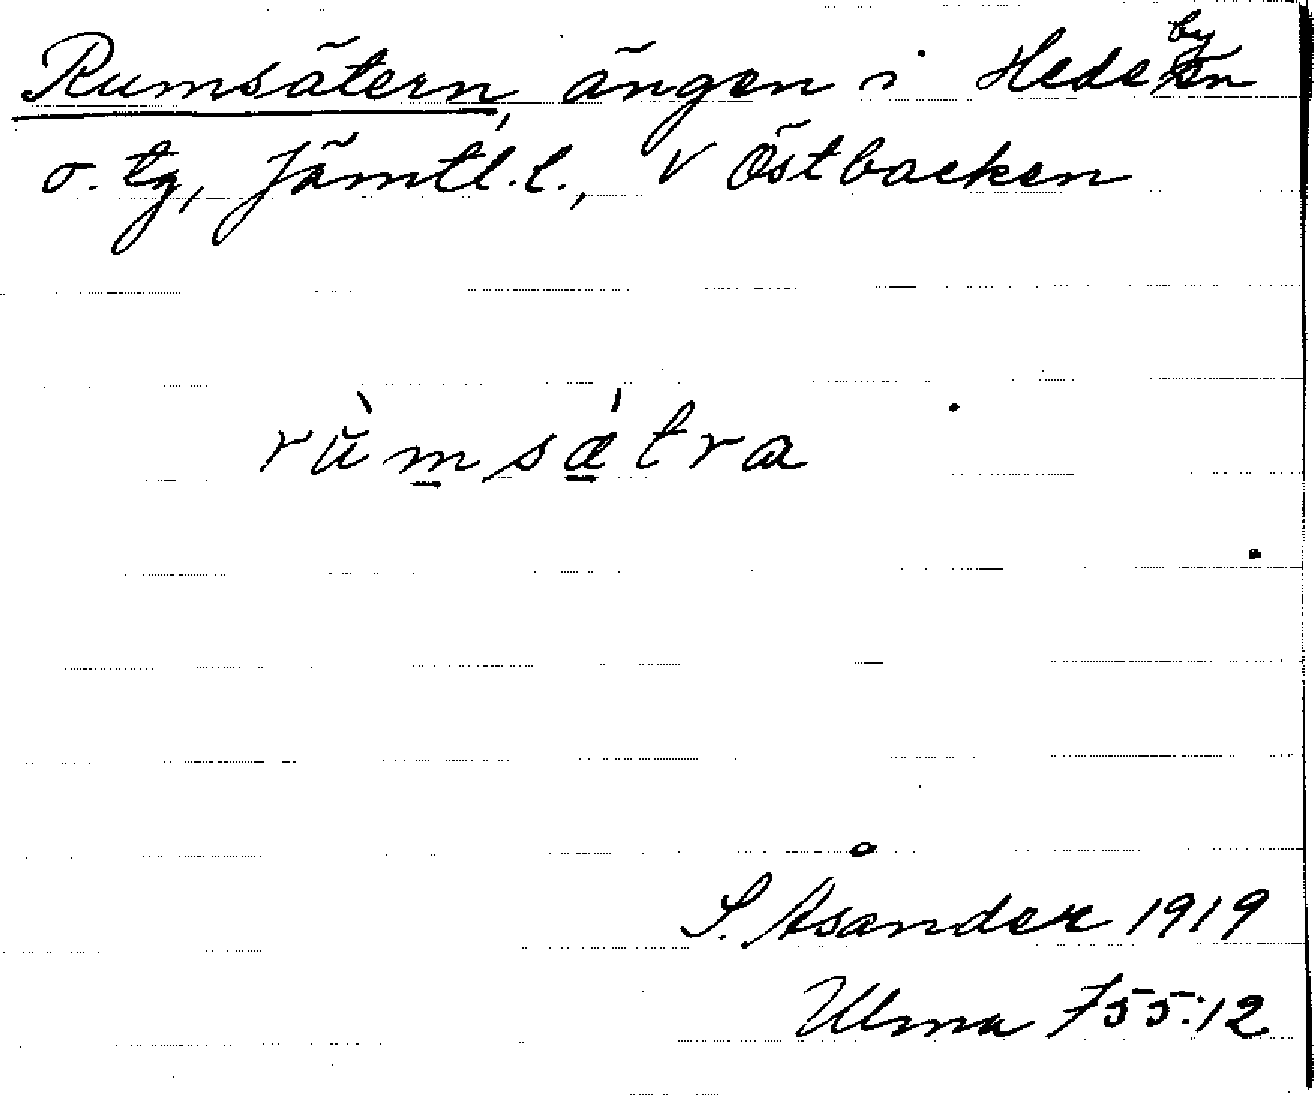 Rumsätern, ängen i Hede byn
o. tg, Jämtl.l., V Östbacken
rùmsátra
S. Åsander 1919
Ulma 755:12